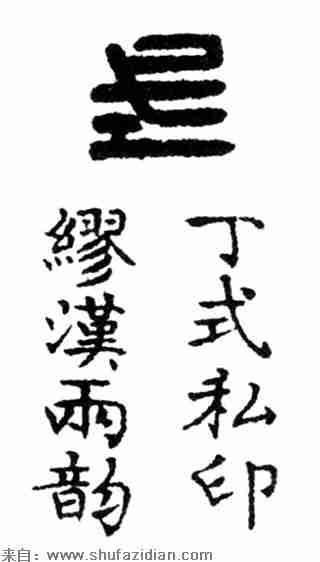 式
丁式私印
繆漢兩韵
来自：www.shufazidian.com